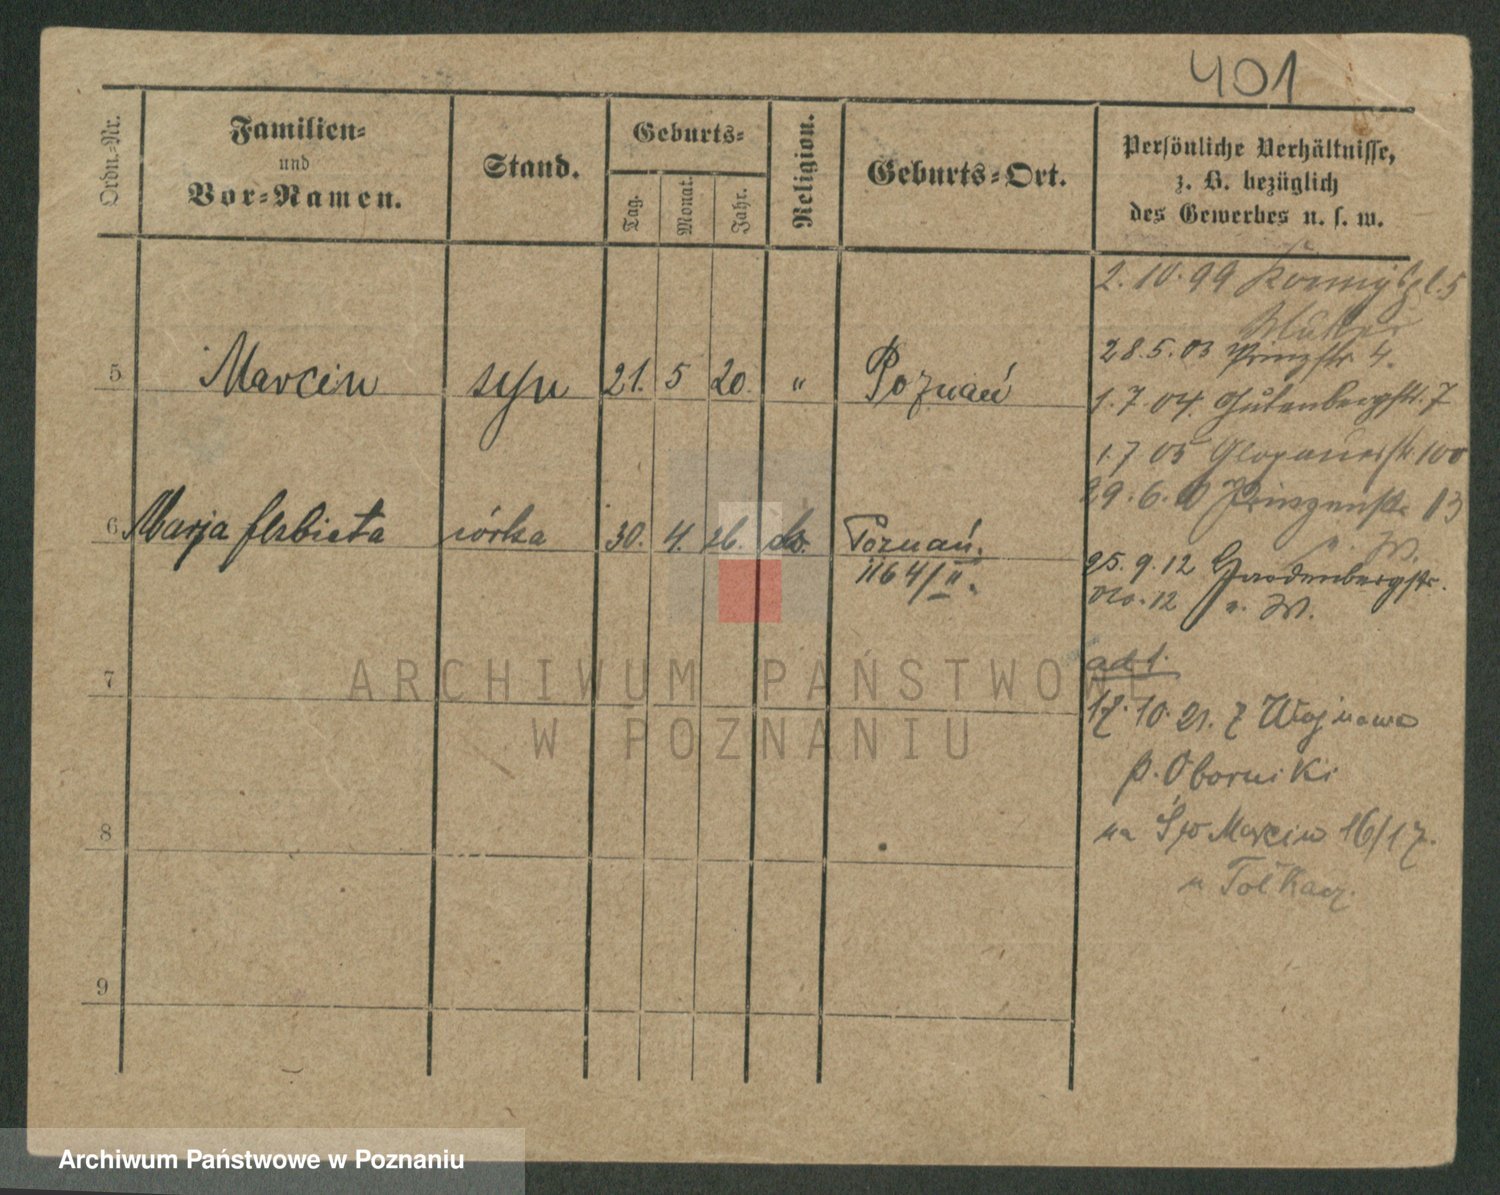 401
Ordn.-Nr.
Familien-
und
Vor-Namen.
Stand.
Geburts-
Tag.
Monat.
Jahr.
Religion.
Geburts-Ort.
Persönliche Verhältnisse,
z. B. bezüglich
des Gewerbes u. s. w.
2.10.99 Koenigspl. 5
Mutter
28.5.03 Prinzstr. 4.
5 Marcin syn 21. 5 20. " Poznań
1.7.04. Gutenbergstr. 7
1.7 05 Glogauerstr. 100
29.6.10 Prinzenstr. 13
b. W.
6 Marja Elżbieta córka 30. 4. 26. do. Poznań.
1164/II.
25.9.12 Gardenbergstr.
12 b. W.
ad 1.
7
17.10.21. z Wojnowa
p. Oborniki
8
na Św Marcin 16/17.
u Tołkacz.
9
ARCHIWUM PAŃSTWOWE
W POZNANIU
Archiwum Państwowe w Poznaniu